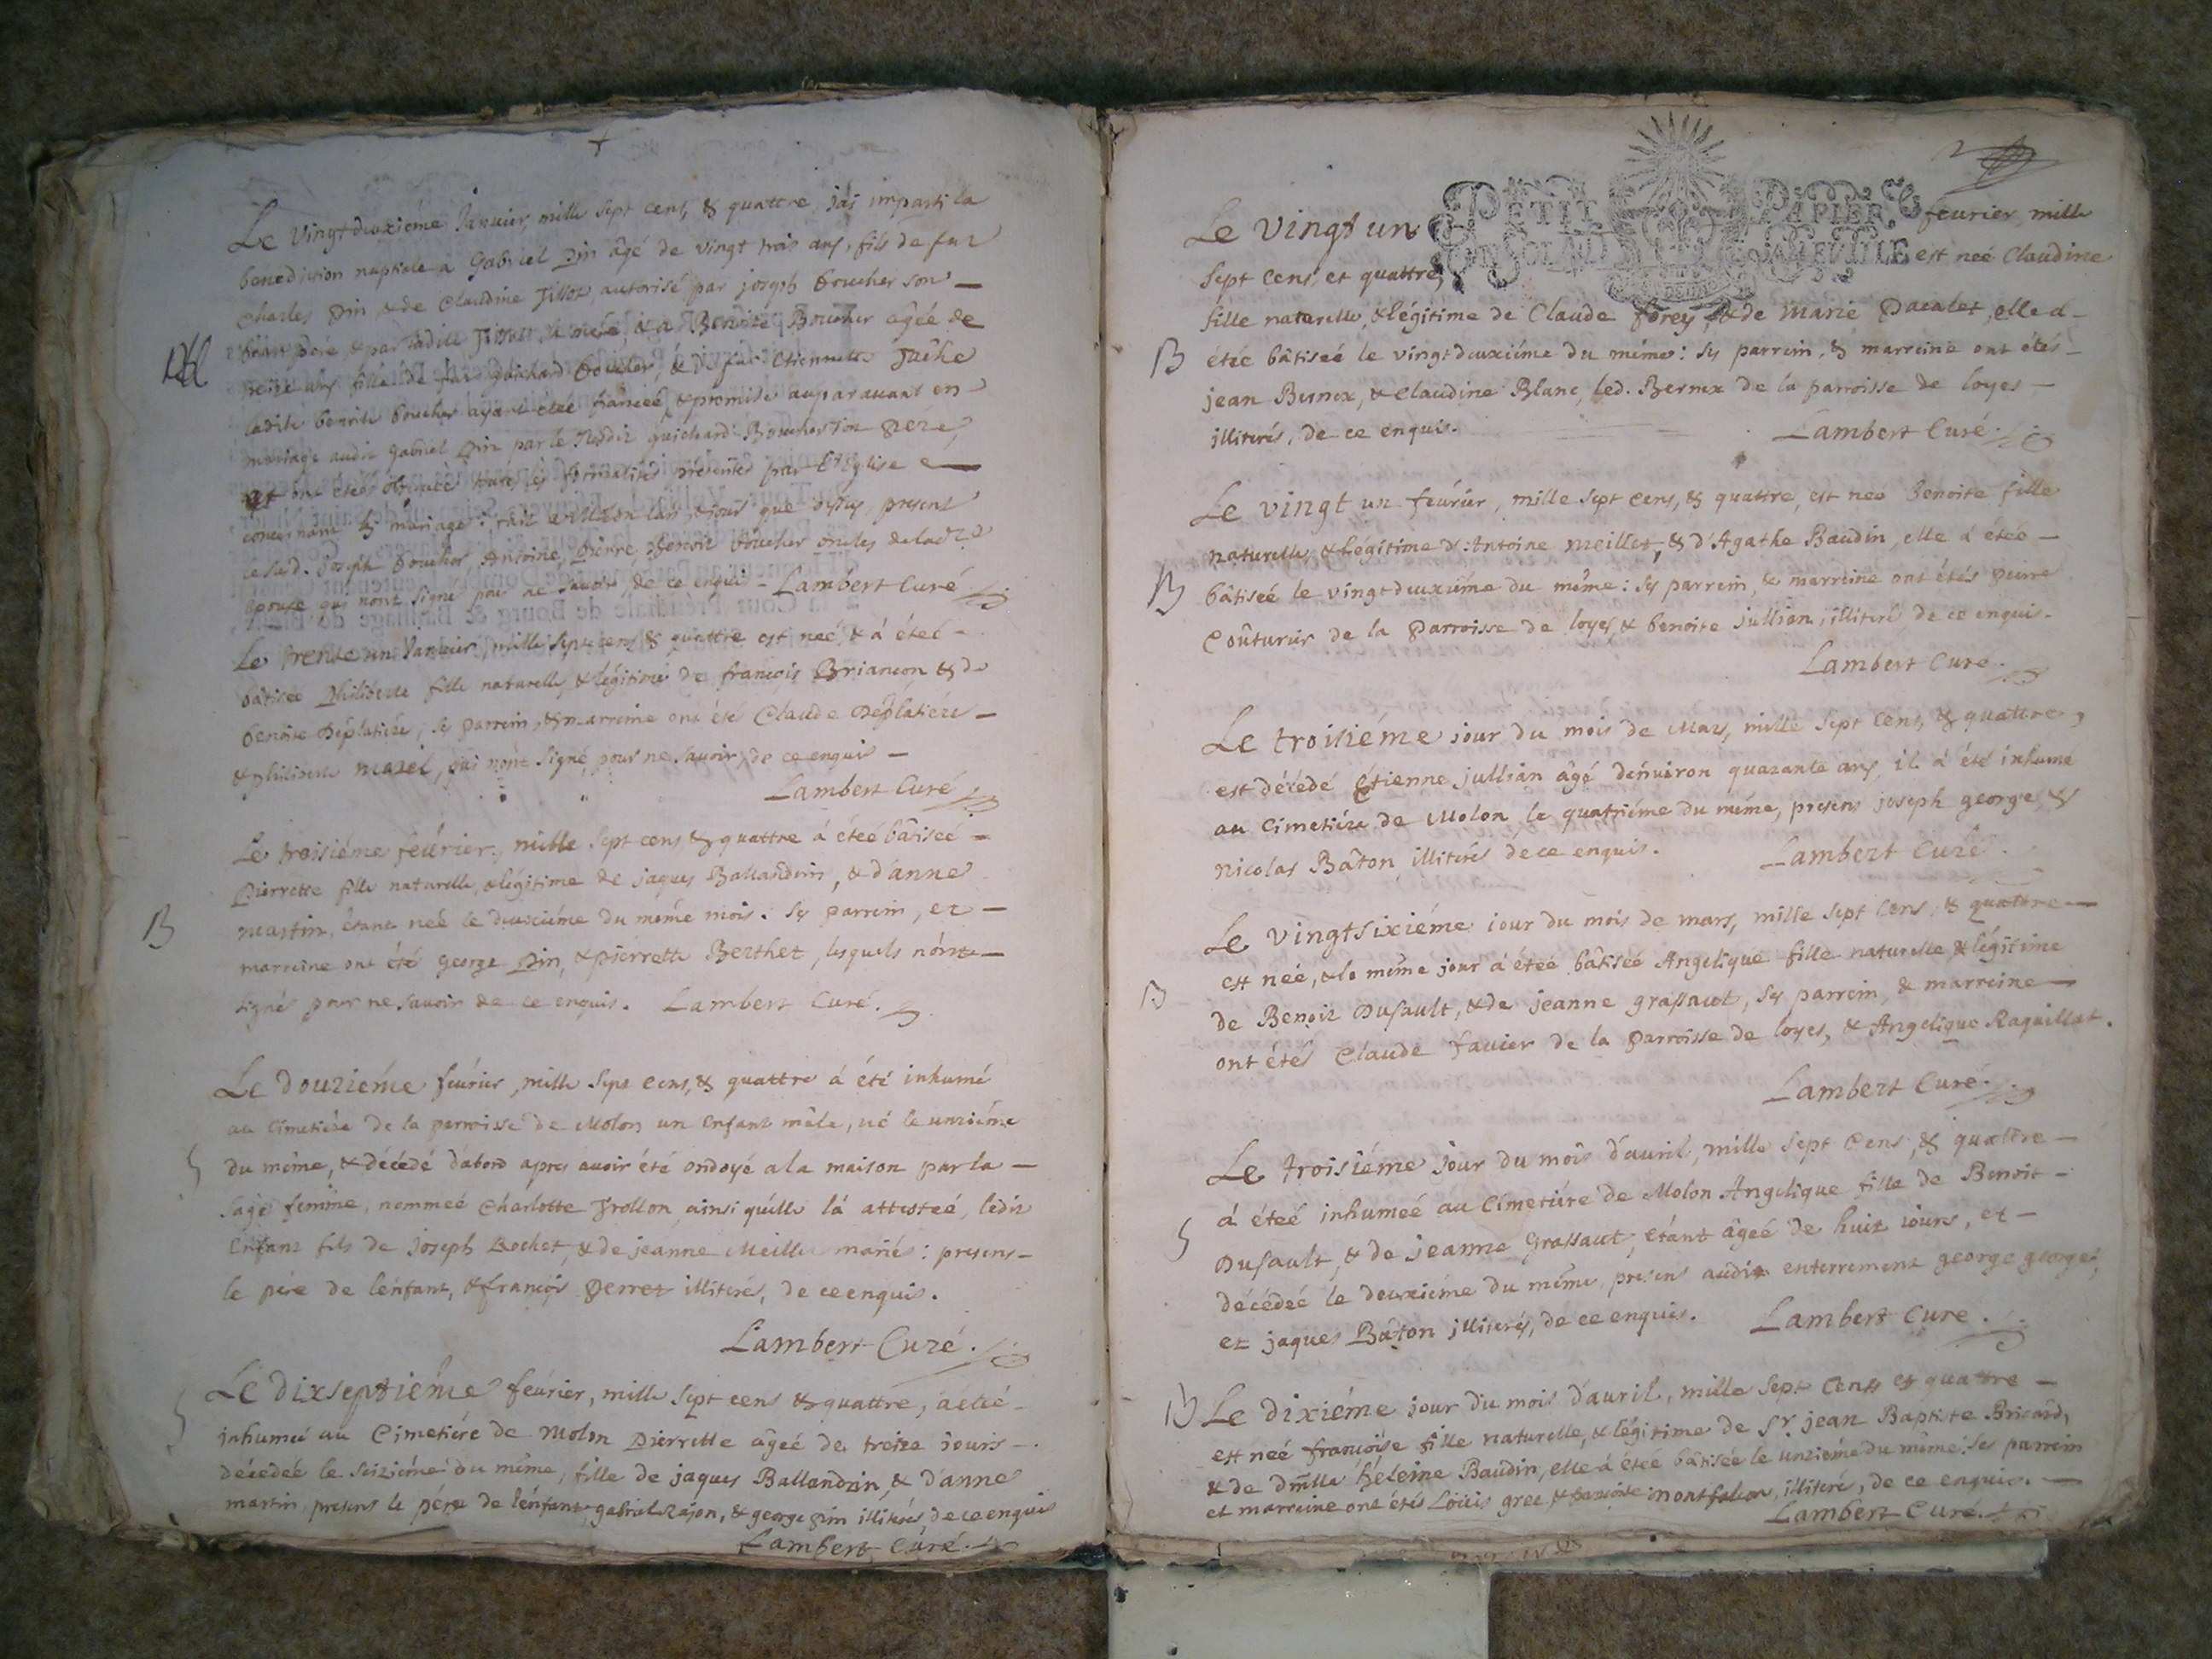 Le Vingtdeuxiéme Januier mille sept cens, & quattre j'ai imparti la
benediction nuptiale a Gabriel Pin âgé de vingt trois ans, fils de feu
Charles Pin & de Claudine Tissot, autorisé par joseph boucher son —
beau pere, & par ladite Tissot, & a Benoite Boucher âgée de
ans fille de feu guichard boucher, & de Etiennette
ladite benoite boucher ayant étéé fianceé, & promise auparauant en
mariage audit Gabriel Pin par le guichard Boucher son pere,
et ont étés obserueé toutes les formalités présentes par l'Eglise
concernant le mariage: fait a Molon l'an, & jour que dessus, present
led. joseph boucher, Antoine, Pierre, Benoit boucher oncles de lad.
épouse qui n'ont signé pour ne sauoir, de ce enquis — Lambert Curé
Le trente un Januier, mille sept cens & quattre est neé, & á éteé -
bâtisée Philiberte fille naturelle, & légitime de françois Briançon & de
benoite Déplatière, ses parrein, & marreine ont été Claude Déplatiére —
& philiberte Morel, qui n'ont signé, pour ne sauoir, de ce enquis —
Lambert Curé
Le troisiéme feurier, mille sept cens & quattre á éteé bâtiseé —
B
Pierrette fille naturelle, & legitime de jaques Ballandrin, & d'anne
martin, étant neé le deuxiéme du méme mois: ses parrein, et —
marreine ont été george Pin, & pierrette Berthet, lesquels n'ont —
signés pour ne sauoir de ce enquis. Lambert Curé.
Le douziéme feurier, mille sept cens, & quattre á été inhumé
au Cimetiére de la parroisse de Molon un enfant mâle, né le unziéme
S
du méme, & décédé d'abord apres auoir été ondoyé a la maison par la —
sage femme, nommeé Charlotte Trollon ainsi qu'elle l'á attesteé, ledit
enfant fils de joseph Rochet, & de jeanne Meille mariés: presens —
le pére de l'enfant, & françois Perret illiterés, de ce enquis.
Lambert Curé.
S
Le dixseptiéme feurier, mille sept cens & quattre, á éteé -
inhumeé au Cimetiére de Molon Pierrette âgeé de treize jours -
décedeé le seiziéme du méme, fille de jaques Ballandrin, & d'anne
martin, presens le pére de l'enfant, gabriel Rajon, & george pin illiterés, de ce enquis
Lambert Curé.
2
PETIT PAPIER
Le Vingt un feurier mille
sept cens, et quattre, est neé Claudine
fille naturelle, & légitime de Claude forey, & de Marie Pacalet, elle á -
B
étéé bâtiseé le vingtdeuxiéme du méme: ses parrein, & marreine ont étés —
jean Bernex, & Claudine Blanc, led. Bernex de la parroisse de loyes —
illiterés, de ce enquis.
Lambert Curé.
Le vingt un feurier, mille sept cens, & quattre, est neé Benoite fille
naturelle, & légitime d'Antoine Meillet, & d'Agathe Baudin, elle á éteé —
B
bâtiseé le vingtdeuxiéme du méme: ses parrein, & marreine ont étés pierre
Coûturier de la Parroisse de loyes, & benoite jullian, illiterés de ce enquis.
Lambert Curé.
Le troisiéme jour du mois de Mars, mille sept cens, & quattre,
est décédé Etienne jullian âgé d'enuiron quarante ans, il á été inhumé
au Cimetiére de Molon le quatriéme du méme, presens joseph george, &
nicolas Bâton illiterés de ce enquis.
Lambert Curé.
Le vingtsixiéme jour du mois de mars, mille sept cens, & quattre —
est neé, & le méme jour á éteé bâtiseé Angelique fille naturelle & légitime
B
de Benoit Dusault, & de jeanne grassaut, ses parrein, & marreine —
ont étés Claude fauier de la parroisse de loyes, & Angelique Raquillat.
Lambert Curé.
Le troisiéme jour du mois d'auril, mille sept cens, & quattre —
á éteé inhumeé au Cimetiére de Molon Angelique fille de Benoit —
S
Dusault, & de jeanne grassaut, étant âgeé de huit jours, et —
décédeé le deuxiéme du méme, presens audit enterrement george george,
et jaques Bâton illiterés, de ce enquis. Lambert Curé.
B
Le dixiéme jour du mois d'auril, mille sept cens et quattre —
est neé françoise fille naturelle, & légitime de Sr. jean Baptiste Bricard,
& de dmlle héleine Baudin, elle á éteé bâtiseé le unziéme du méme: ses parrein
et marreine ont étés Loüis gree, & francoise illiterés, de ce enquis. —
Lambert Curé.